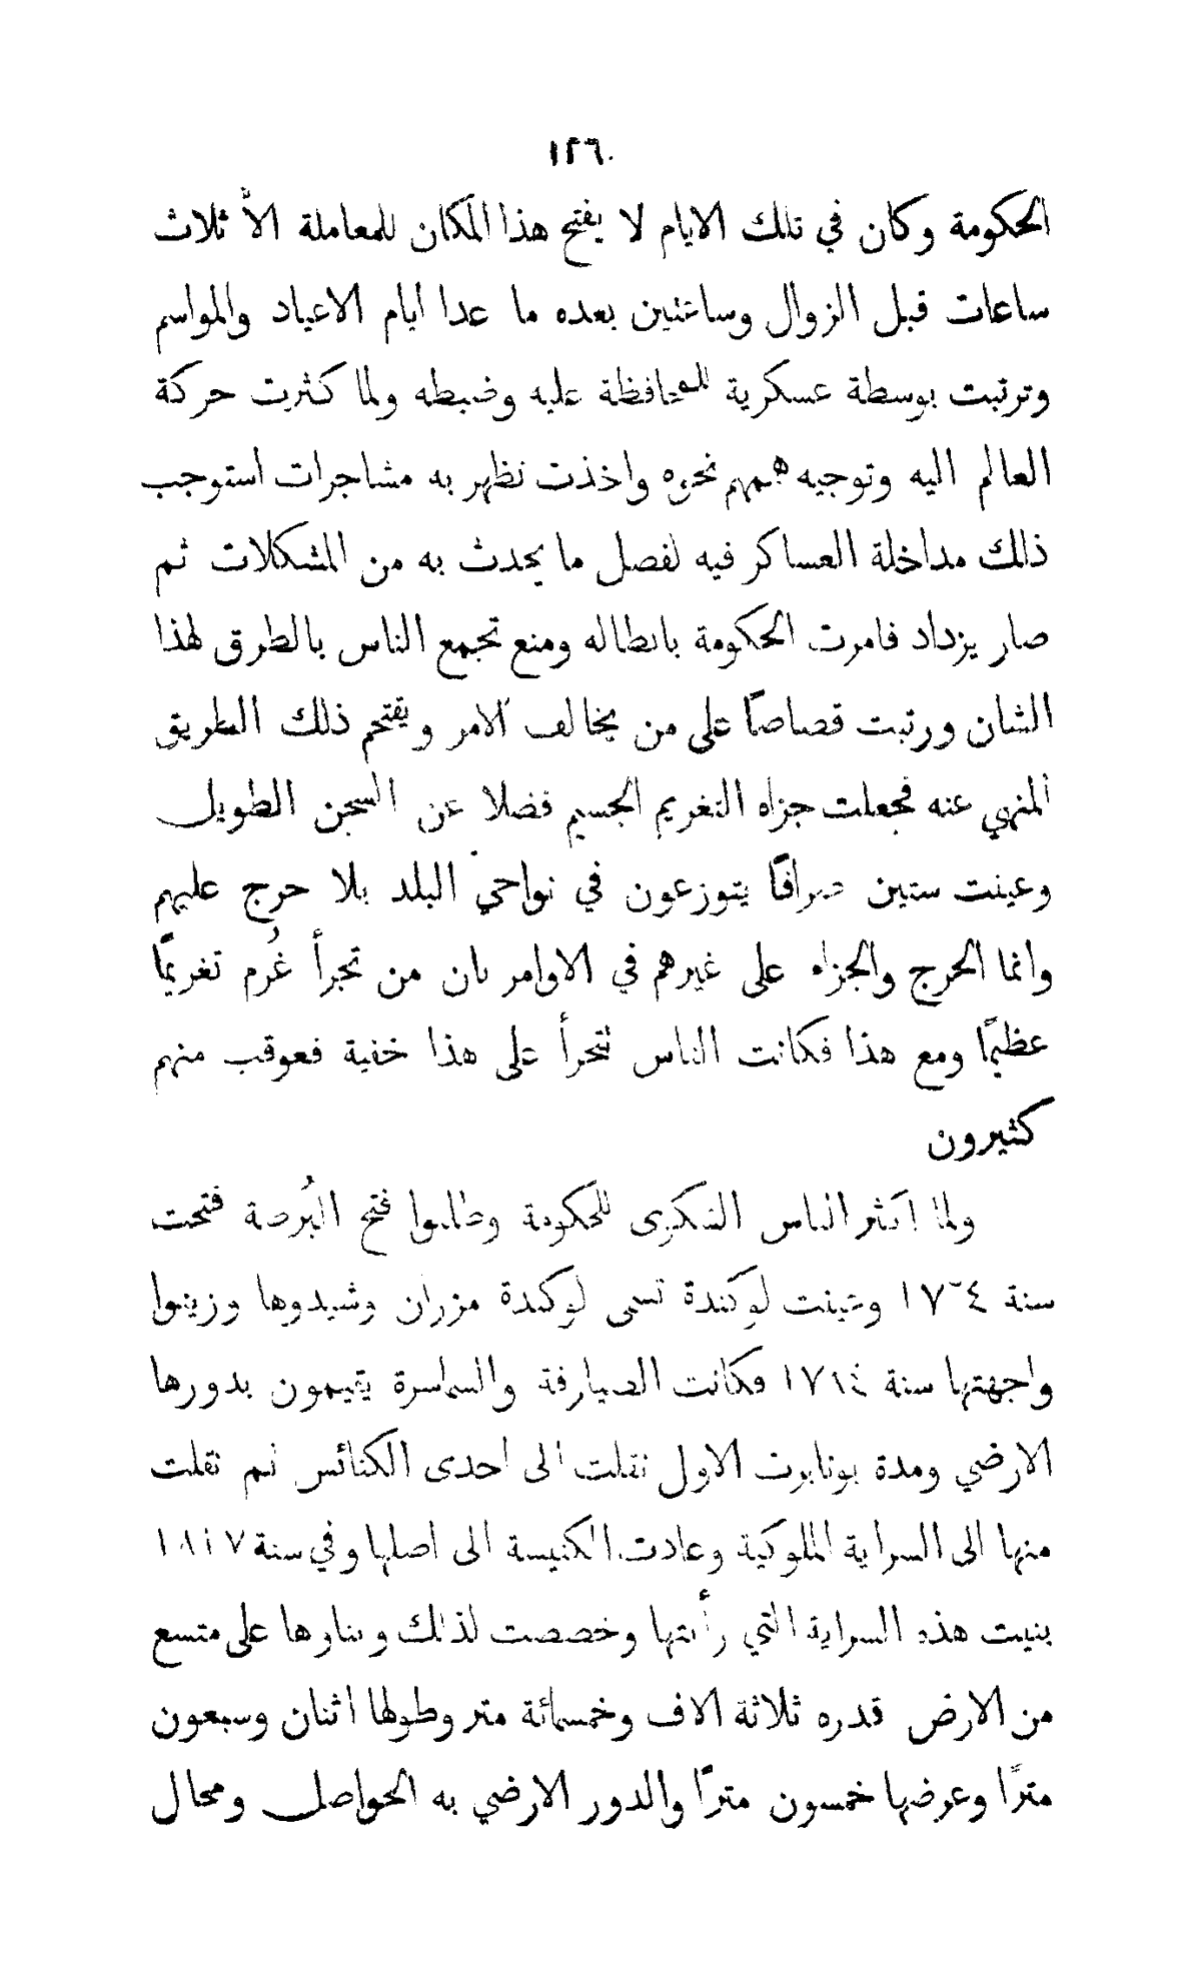 ١٢٦٠
الحكومة وكان في تلك الايام لا يفتح هذا المكان للمعاملة الاّ ثلاث
ساعات قبل الزوال وساعتين بعده ما عدا ايام الاعياد والمواسم
وترتبت بوسطة عسكرية للمحافظة عليه وضبطه ولما كثرت حركة
العالم اليه وتوجيه هممهم نحوه واخذت تظهر به مشاجرات استوجب
ذلك مداخلة العساكر فيه لفصل ما يحدث به من المشكلات ثم
صار يزداد فامرت الحكومة بابطاله ومنع تجمع الناس بالطرق لهذا
الشان ورتبت قصاصاً على من يخالف الامر ويقتحم ذلك الطريق
المنهي عنه فجعلت جزاه التغريم الجسيم فضلا عن السجن الطويل
وعينت ستين صرافاً يتوزعون في نواحي البلد بلا حرج عليهم
وانما الحرج والجزاء على غيرهم في الاوامر بان من تجرأ غُرم تغريماً
عظيماً ومع هذا فكانت الناس تتجرأ على هذا خفية فعوقب منهم
كثيرون
ولما اكثر الناس الشكوى للحكومة وطلبوا فتح البُرصة فتحت
سنة وعينت لوكندة تسمى لوكندة مزران وشيدوها وزينوا
واجهتها سنة فكانت الصيارفة والسماسرة يقيمون بدورها
الارضي ومدة بونابرت الاول نقلت الى احدى الكنائس ثم نقلت
منها الى السراية الملوكية وعادت الكنيسة الى اصلها وفي سنة
بنيت هذه السراية التي رأيتها وخصصت لذلك وبناوها على متسع
من الارض قدره ثلاثة الاف وخمسمائة متر وطولها اثنان وسبعون
متراً وعرضها خمسون متراً والدور الارضي به الحواصل ومحال